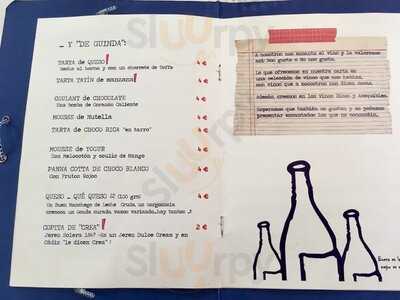 … Y "DE GUINDA":
TARTA de QUESO 4 €
hecha al horno y con un chorrete de Toffe
TARTA TATÍN de manzana 4 €
COULANT de CHOCOLATE 4 €
Una bomba de Corazón Caliente
MOUSSE de Nutella 4 €
TARTA de CHOCO RICA "en tarro" 4 €
MOUSSE de YOGUR 4 €
Con Melocotón y coulis de Mango
PANNA COTTA DE CHOCO BLANCO 4 €
Con Frutos Rojos
QUESO … QUÉ QUESO (100 grs) 4 €
Un Buen Manchego de Leche Cruda, un gorgonzola
cremoso un Gouda curado, vamos variando…hay tantos
COPITA DE "CREA" 2 €
Jerez Solera 1847 -Es un Jerez Dulce Cream y en
Cádiz "le dicen Crea"!
A nosotros nos encanta el vino y lo valoramos
por gusta o no nos gusta.
Lo que ofrecemos en nuestra carta es
una selección de vinos que nos gustan,
son vinos que a nosotros nos dicen cosas.
Además, creemos en los Vinos Ricos y Asequibles.
Esperamos que también os gusten y os podamos
presentar encantados los que no conozcáis.